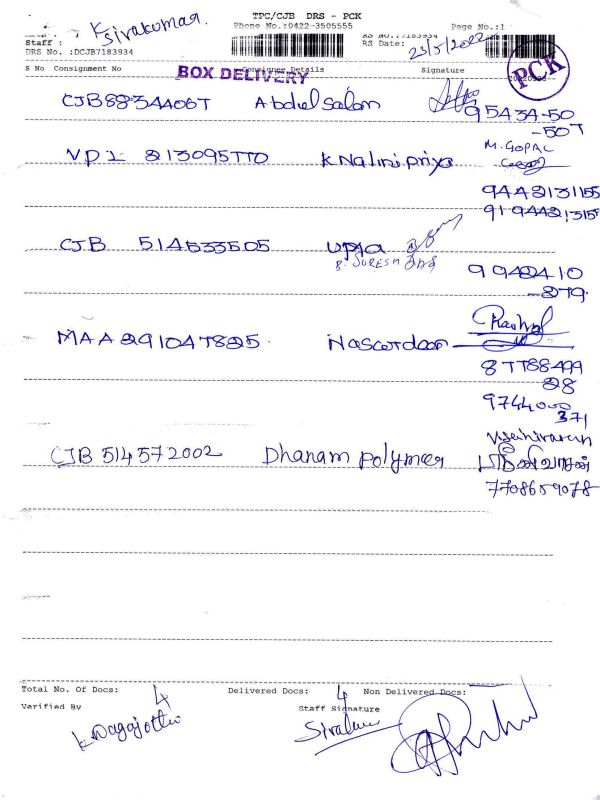 TPC/CJB DRS - PCK
K Sivakumar.
Phone No.:0422-3505555
Page No.:1
Staff :
RS Date: 23/5/2022
DRS No. :DCJB7183934
S No Consignment No Consignee Details Signature
BOX DELIVERY
PCK
CJB8834406T Abdulsalam
95434-50
-50T
VPI 213095770 K Nalini priya
M. GOPAL
9442131155
CJB 514533505 upla
B. SURESH
9942410
-279.
MAA 291047825.
87788499
28
9744000
371
CJB 514572002 Dhanam polymer
7708659078
Total No. Of Docs: 4 Delivered Docs: 4 Non Delivered Docs:
Verified By Staff Signature